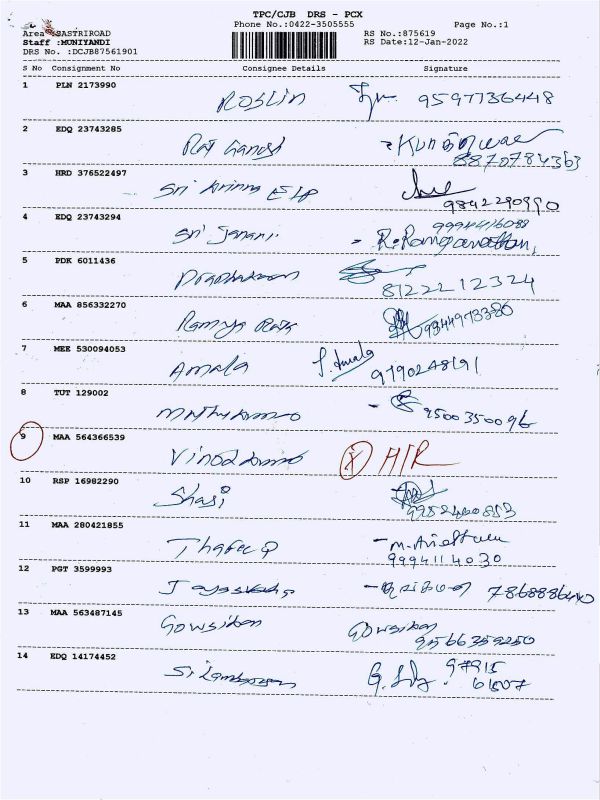 TPC/CJB DRS - PCX
Phone No.:0422-3505555 Page No.:1
Area :SASTRIROAD RS No.:875619
Staff :MUNIYANDI RS Date:12-Jan-2022
DRS No. :DCJB87561901
S No Consignment No Consignee Details Signature
1 PLN 2173990
Roslin 9597736448
2 EDQ 23743285
Raj Ganesh
8870784363
3 HRD 376522497
Sri
9842290990
4 EDQ 23743294
Sri Janani R. Ranganathan
5 PDK 6011436
Prabhakaran
81222 12324
6 MAA 856332270
Ramya 9344973380
7 MEE 530094053
Amala J. Amala
9790248191
8 TUT 129002
Muthukumar 9500350096
9 MAA 564366539
Vinod kumar
10 RSP 16982290
Shaji
9952400853
11 MAA 280421855
9994114030
12 PGT 3599993
13 MAA 563487145
Gowsikan Gowsikan
9566359250
14 EDQ 14174452
Silambarasan 97915
61507